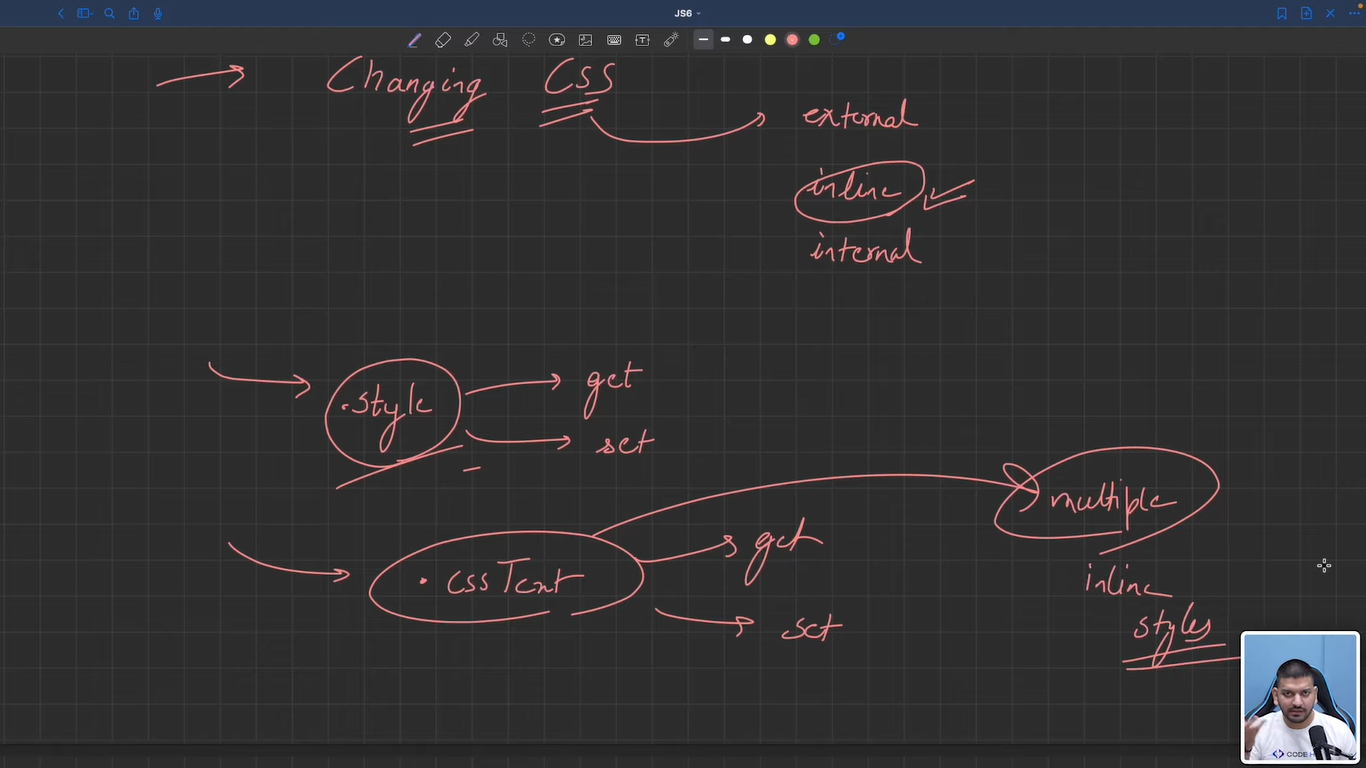 JS6
Changing CSS
external
inline
internal
.style
get
set
multiple
.cssText
get
inline
set
styles
CODE H